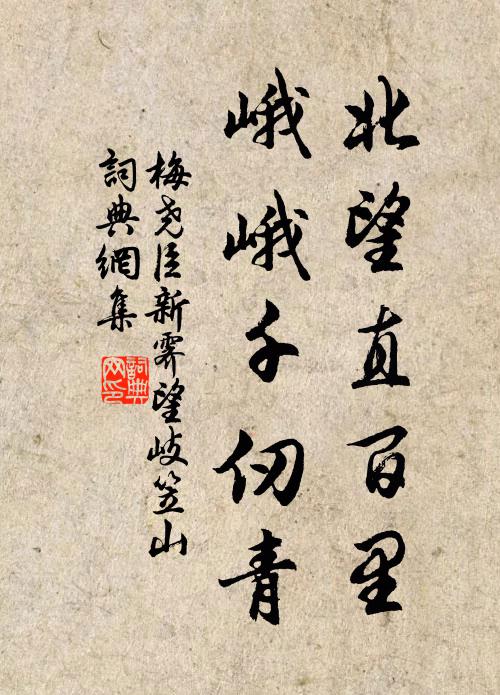 北望直百里
峨峨千仞青
梅尧臣新霽望歧笠山
詞典網集
詞典網印